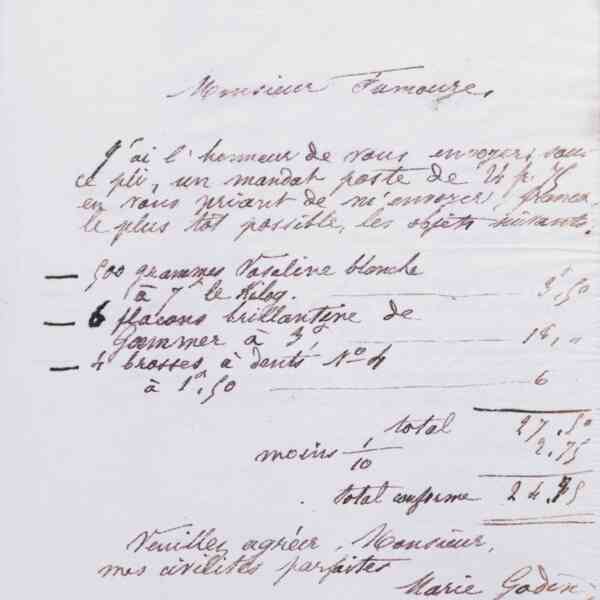 Monsieur Famouze,
J'ai l'honneur de vous envoyer, sous
ce pli, un mandat poste de 24 f. 75
en vous priant de m'envoyer, franco,
le plus tôt possible, les objets suivants.
— 500 grammes Vaseline blanche
à 7f le Kilog. 3f,50
— 6 flacons brillantine de
à 3f 18,"
— 4 brosses à dents No 4
à 1f.50 6
total 27.50
moins 1/10 2.75
total conforme 24.75
Veuillez agréer, Monsieur,
mes civilités parfaites
Marie Godin